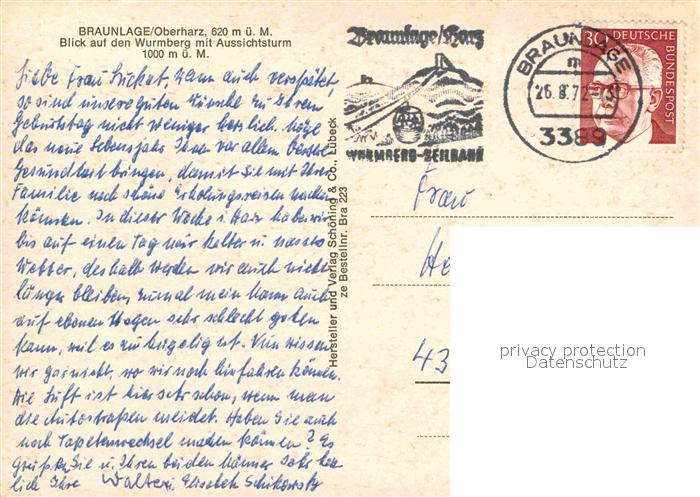 BRAUNLAGE/Oberharz, 620 m ü. M.
Blick auf den Wurmberg mit Aussichtsturm
1000 m ü. M.
Liebe Frau Suckat, wenn auch verspätet,
so sind unsere guten Wünsche zu Ihrem
Geburtstag nicht weniger herzlich. Möge
das neue Lebensjahr Ihnen vor allem bessere
Gesundheit bringen, damit Sie mit Ihrer
Familie noch schöne Erholungsreisen machen
können. In dieser Woche i. Harz haben wir
bis auf einen Tag nur kaltes u. nasses
Wetter, deshalb werden wir auch nicht
länger bleiben, zumal mein Mann auch
auf ebenen Wegen sehr schlecht gehen
kann, weil es zu hügelig ist. Nun wissen
wir gar nicht, wo wir noch hinfahren können.
Die Luft ist hier sehr schön, wenn man
die Autostraßen meidet. Haben Sie auch
noch Tapetenwechsel machen können? Es
grüßen Sie u. Ihren beiden Männer sehr herz
lich Ihre Walter u. Elisabeth Schikowsky
Hersteller und Verlag Schöning & Co., Lübeck
ze Bestellnr. Bra 223
Braunlage/Harz
WURMBERG-SEILBAHN
BRAUNLAGE
m
26.8.72
3389
30
DEUTSCHE
BUNDESPOST
Frau
He
43
privacy protection
Datenschutz